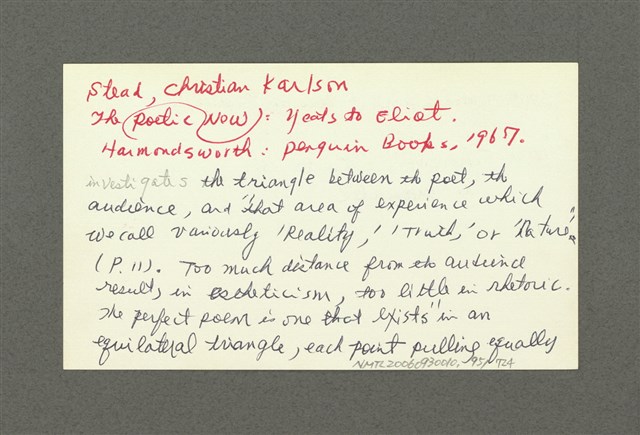 Stead, Christian Karlson
The Poetic (Now): Yeats to Eliot.
Harmondsworth: Penguin Books, 1967.
investigates the triangle between the poet, the
audience, and "that area of experience which
we call variously 'Reality,' 'Truth,' or 'Nature'"
(P. 11). Too much distance from the audience
results in estheticism, too little in rhetoric.
The perfect poem is one that exists "in an
equilateral triangle, each point pulling equally
NMTL20060930010, 95/124